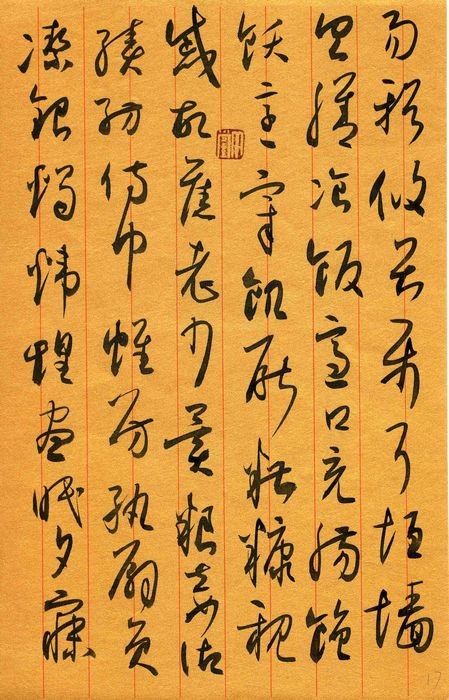 易輶攸畏屬耳垣墻
具膳飡飯適口充腸飽
飫烹宰飢厭糟糠親
戚故舊老少異粮妾御
績紡侍巾帷房紈扇員
潔銀燭煒煌晝眠夕寐
17